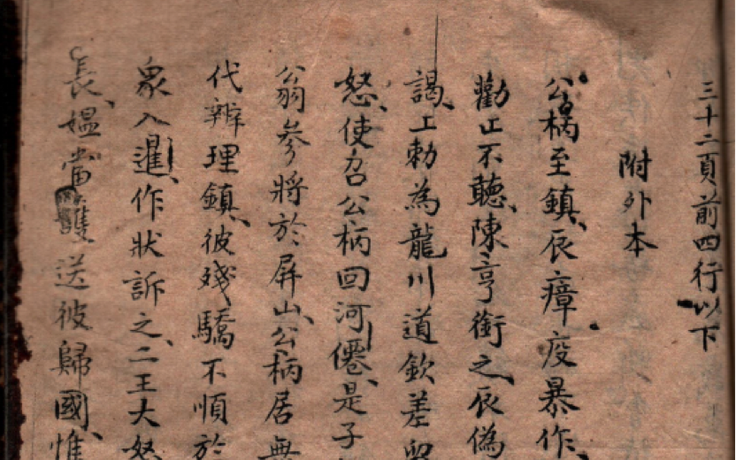 三十二頁前四行以下
附外本
公柄至鎮、辰瘴疫暴作、
勸止不聽、陳亨銜之、辰偽
謁、上勅為龍川道欽差
怒、使召公柄回河僊、是子
翁參將於屏山、公柄居無
代辨理鎮、彼殘驕不順於
衆入暹、作狀訴之、二王大怒
長、媪當護送彼歸國、惟